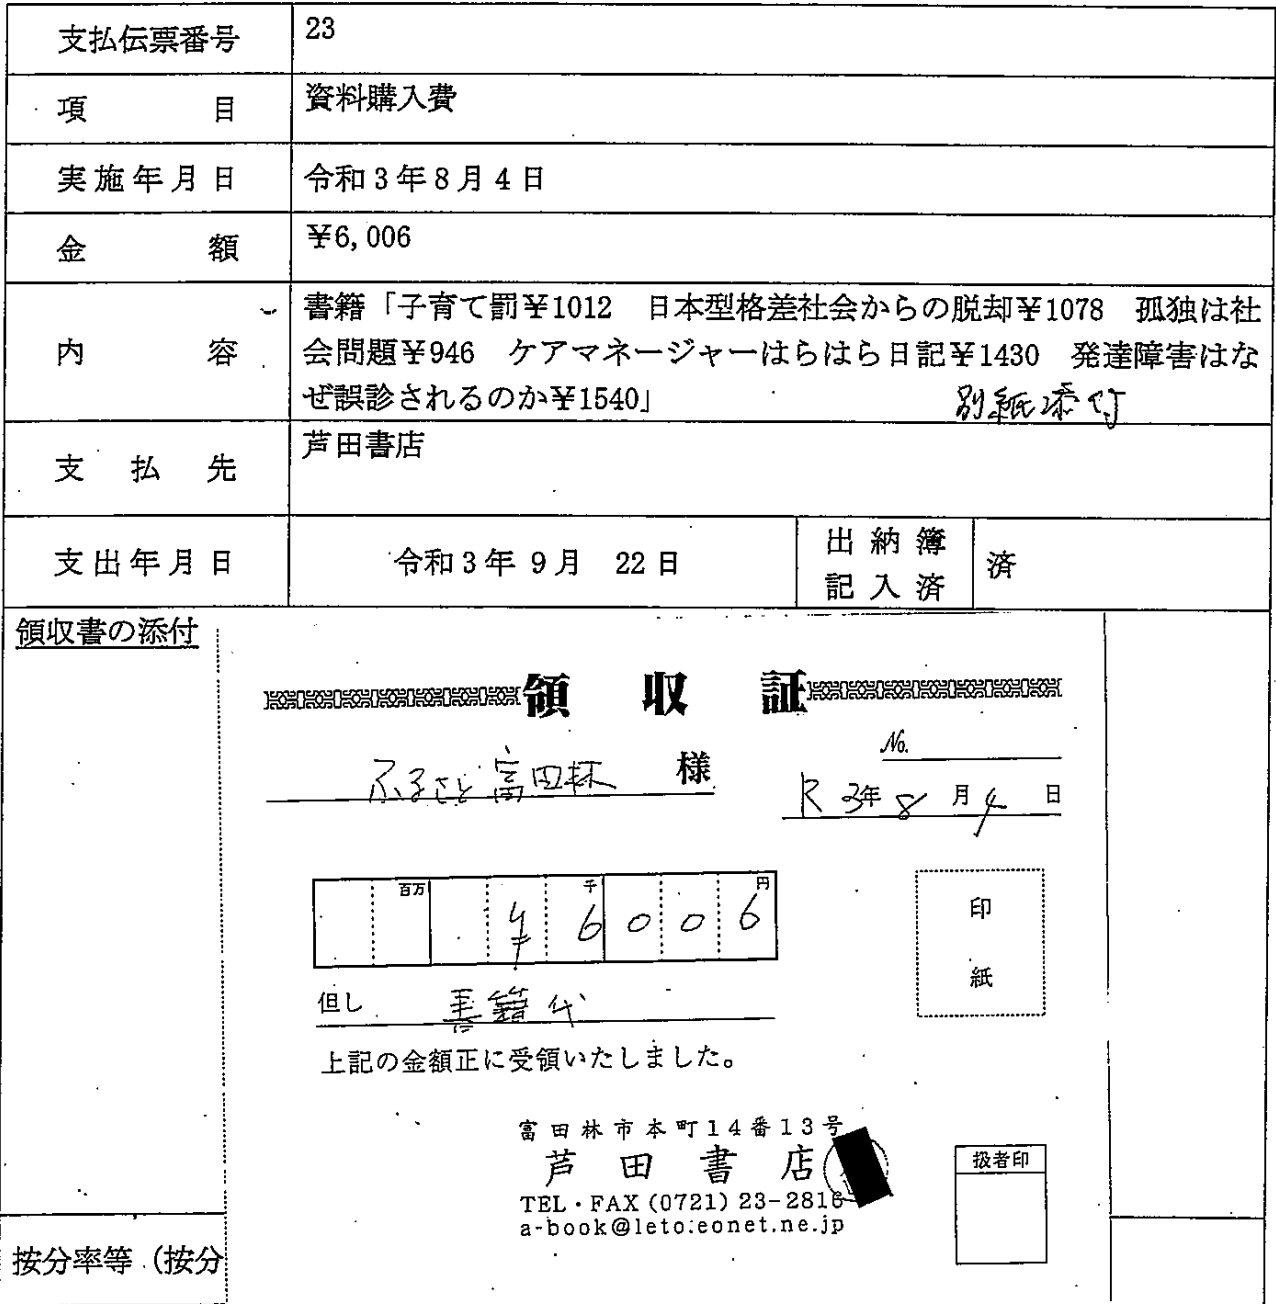 支払伝票番号 23
項目 資料購入費
実施年月日 令和3年8月4日
金額 ¥6,006
内容 書籍「子育て罰¥1012　日本型格差社会からの脱却¥1078　孤独は社
会問題¥946　ケアマネージャーはらはら日記¥1430　発達障害はな
ぜ誤診されるのか¥1540」
別紙添付
支払先 芦田書店
支出年月日 令和3年9月 22日 出納簿
記入済 済
領収書の添付
領収証
No.
ふるさと富田林 様
R3年8月4日
百万 千 円
¥6006
印
紙
但し 書籍代
上記の金額正に受領いたしました。
富田林市本町14番13号
芦田書店
扱者印
TEL・FAX (0721) 23-2816
a-book@leto.eonet.ne.jp
按分率等（按分